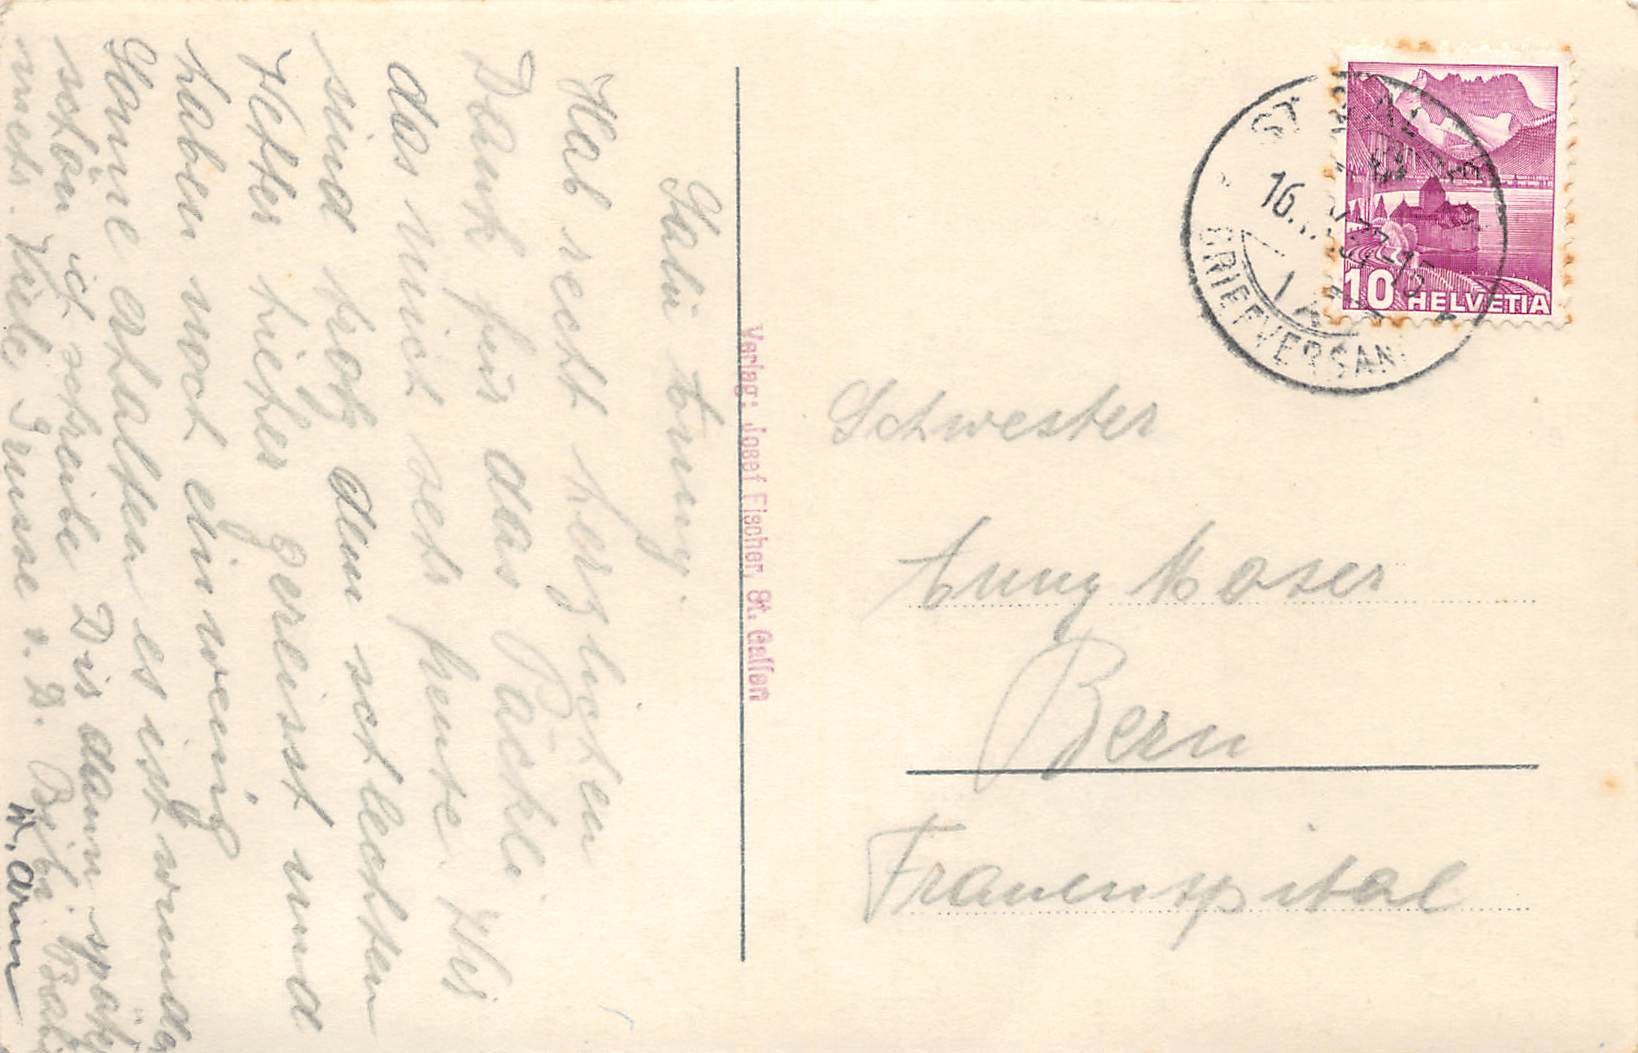 Salü Enny.
Hab recht herzlichen
Dank für das Päckli
das mich sehr freute. Wir
sind trotz dem schlechten
Wetter hieher gereisst und
haben noch ein wenig
Sonne erhalten es ist wunder
schön ich schreibe Dir dann später
mehr. Viele Grüsse v. D.
Verlag: Josef Fischer, St. Gallen
10 HELVETIA
ST. GALLEN
16.
BRIEFVERSAN
Schwester
Enny Moser
Bern
Frauenspital